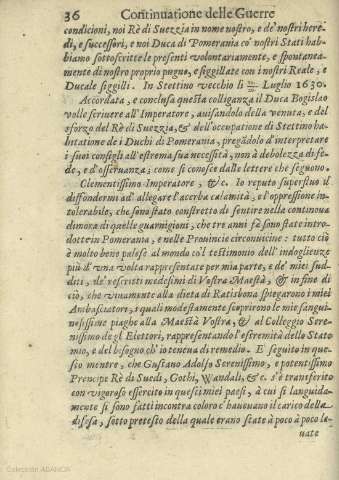 36 Continuatione delle Guerre
condicioni, noi Rè di Suezzia in nome nostro, e de' nostri here-
di, e successori, e noi Duca di Pomerania co' nostri Stati hab-
biamo sottoscritte le presenti volontariamente, e spontanea-
mente di nostro proprio pugno, e siggillate con i nostri Reale, e
Ducale siggilli. In Stettino vecchio li Luglio 1630.
Accordata, e conclusa questa colliganza il Duca Bogislao
volle scriuere all'Imperatore, auisandolo della venuta, e del
sforzo del Rè di Suezzia, & dell'occupatione di Stettino ha-
bitatione de i Duchi di Pomerania, pregãdolo d'interpretare
i suoi consigli all'estrema sua necessità, non à debolezza di fe-
de, e d'osseruanza; come si conosce dalle lettere che seguono.
Clementissimo Imperatore, &c. Io reputo superfluo il
diffondermi ad' allegare l'acerba calamità, e l'oppressione in-
tolerabile, che sono stato constretto di sentire nella continoua
dimora di quelle guarnigioni, che tre anni fà sono state intro-
dotte in Pomerania, e nelle Prouincie circonuicine: tutto ciò
è molto bene palese al mondo co'l testimonio dell'indoglienze
più d'una volta rapresentate per mia parte, e de' miei sud-
diti, de' rescritti medesimi di Vostra Maestà, & in fine di
ciò, che viuamente alla dieta di Ratisbona spiegarono i miei
Ambasciatori, i quali modestamente scoprirono le mie sangui-
nosissime piaghe alla Maestà Vostra, & al Colleggio Sere-
nissimo de gl'Elettori, rapresentando l'estremità dello Stato
mio, e del bisogno, ch'io teneua di remedio. E' seguito in que-
sto mentre, che Gustano Adolfo Serenissimo, e potentissimo
Prencipe Rè di Suedi, Gothi, Wandali, &c. s'è transferito
con vigoroso essercito in questi miei paesi, à cui si languida-
mente si sono fatti incontra coloro c'haueuano il carico della
difesa, sotto pretesto della quale erano state à poco à poco le-
uate
Colección ABANCA